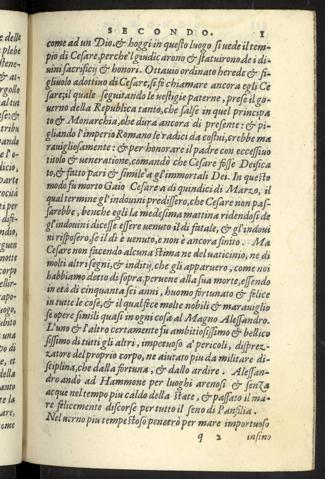 SECONDO.
come ad un Dio, & hoggi in questo luogo si vede il tem=
pio di Cesare, perche'l giudicarono & statuirono de i di=
uini sacrificij & honori. Ottauio ordinato herede & fi=
gliuolo adottiuo di Cesare, si fe chiamare ancora egli Ce
sare; il quale seguitando le uestigie paterne, prese il go=
uerno della Republica tanto, che salse in quel principa
to & Monarchia, che dura ancora di presente: & pi=
gliando l'imperio Romano le radici da costui, crebbe ma
rauigliosamente: & per honorare il padre con eccessiuo
titolo & ueneratione, comandò che Cesare fosse Deifica
to, & fatto pari & simile a gl'immortali Dei. In questo
modo fu morto Gaio Cesare a di quindici di Marzo, il
qual termine gl'indouini predissero, che Cesare non pas=
sarebbe, benche egli la medesima mattina ridendosi de
gl'indouini dicesse essere uenuto il dì fatale, & gl'indoui
ni risposero, se il dì è uenuto, e non è ancora finito. Ma
Cesare non facendo alcuna stima ne del uaticinio, ne di
molti altri segni, & inditij, che gli apparuero, come noi
habbiamo detto di sopra, peruene alla sua morte, essendo
in età di cinquanta sei anni, huomo fortunato & felice
in tutte le cose, & il qual fece molte nobili & marauiglio
se opere simili quasi in ogni cosa al Magno Alessandro.
L'uno & l'altro certamente fu ambitiosissimo & bellico
sissimo di tutti gli altri, impetuoso a' pericoli, disprez=
zatore del proprio corpo, ne aiutato piu da militare di=
sciplina, che dalla fortuna, & dallo ardire. Alessan=
dro andò ad Hammone per luoghi arenosi & senza
acque nel tempo piu caldo della state, & passato il ma=
re felicemente discorse per tutto il seno di Panfilia.
Nel uerno piu tempestoso penetrò per mare importuoso
q 2 insino